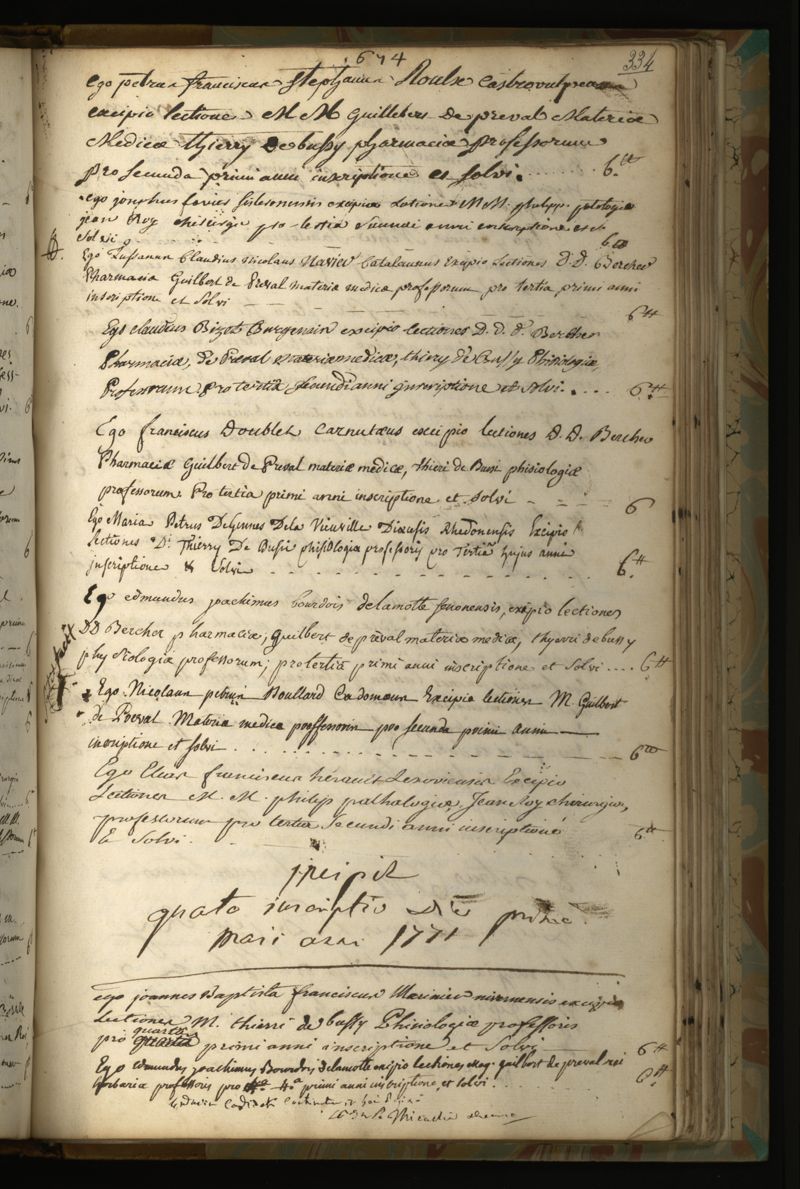 674
334
ego petrus franciscus Stephanus Roulx
excipio lectiones M M Guillebert de preval Materiæ
Medicæ thierry de bussy pharmaciæ professorum
pro secunda primi anni inscriptione et solvi. 6.tt
excipio Lectiones M.M. philipp. patologiæ
jean Roy chirurgiæ pro tertia secundi anni inscriptione et
solvi 6tt
Ego Claudius Nicolaus Navier Catalaunus Excipio Lectiones D.D. Bercher
Pharmaciæ Guilbert de Preval materiæ medicæ professorum pro tertia primi anni
inscriptione et solvi 6tt
Ego claudius Bizot excipio lectiones D. D. D. Bercher
Pharmaciæ, de Preval materiæ medicæ, thiery de Bussy Phisiologiæ,
Professorum pro tertiâ secundi anni inscriptione et solvi. 6tt
Ego franciscus Doublet Carnutæus excipio lectiones D. D. Bercher
Pharmaciæ Guilbert de Preval materiæ medicæ, thieri de Bussi phisiologiæ
professorum. Pro tertia primi anni inscriptione et solvi 6
Ego Maria Petrus Dela Vieuville Diæcesis Rhedonensis Excipio
Lectiones Di Thierry De Bussi phisiologiæ professoris pro Tertiâ hujus anni
inscriptione & Solvi 6.tt
Ego edmundus joachimus bourdois delamotte senonensis, exipio lectiones
DD Bercher pharmaciæ, guilbert de prèval materiæ medicæ, thyerri de bussy
physiologiæ professorum; pro tertiâ primi anni inscriptione et solvi .... 6tt
Ego Nicolaus petrus Roullard Cadomæus Excipio lectiones M. Guilbert
de Preval Materiæ medicæ proffessoris pro secunda primi anni
incriptione et solvi 6tt
Ego Elias franciscus herault Lexoviensis Excipio
Lectiones M. M. philip pathalogiæ, Jean Roy chirurgiæ,
professorum pro tertia secundi anni inscriptione
Et Solvi. 6tt
jncipit
quarta inscriptio Die prima
maii anni 1771
ego joannes Baptista franciscus nivernensis excipio
Lectiones M. thierri de bussy Phisiologiæ professoris
pro quarta primi anni inscriptione et Solvi 6tt
Ego edmundus joachimus Bourdois delamotte exipio lectiones mag. guilbert de preval rei
herbariæ professoris pro 4.a primi anni inscriptione, et solvi. 6.tt